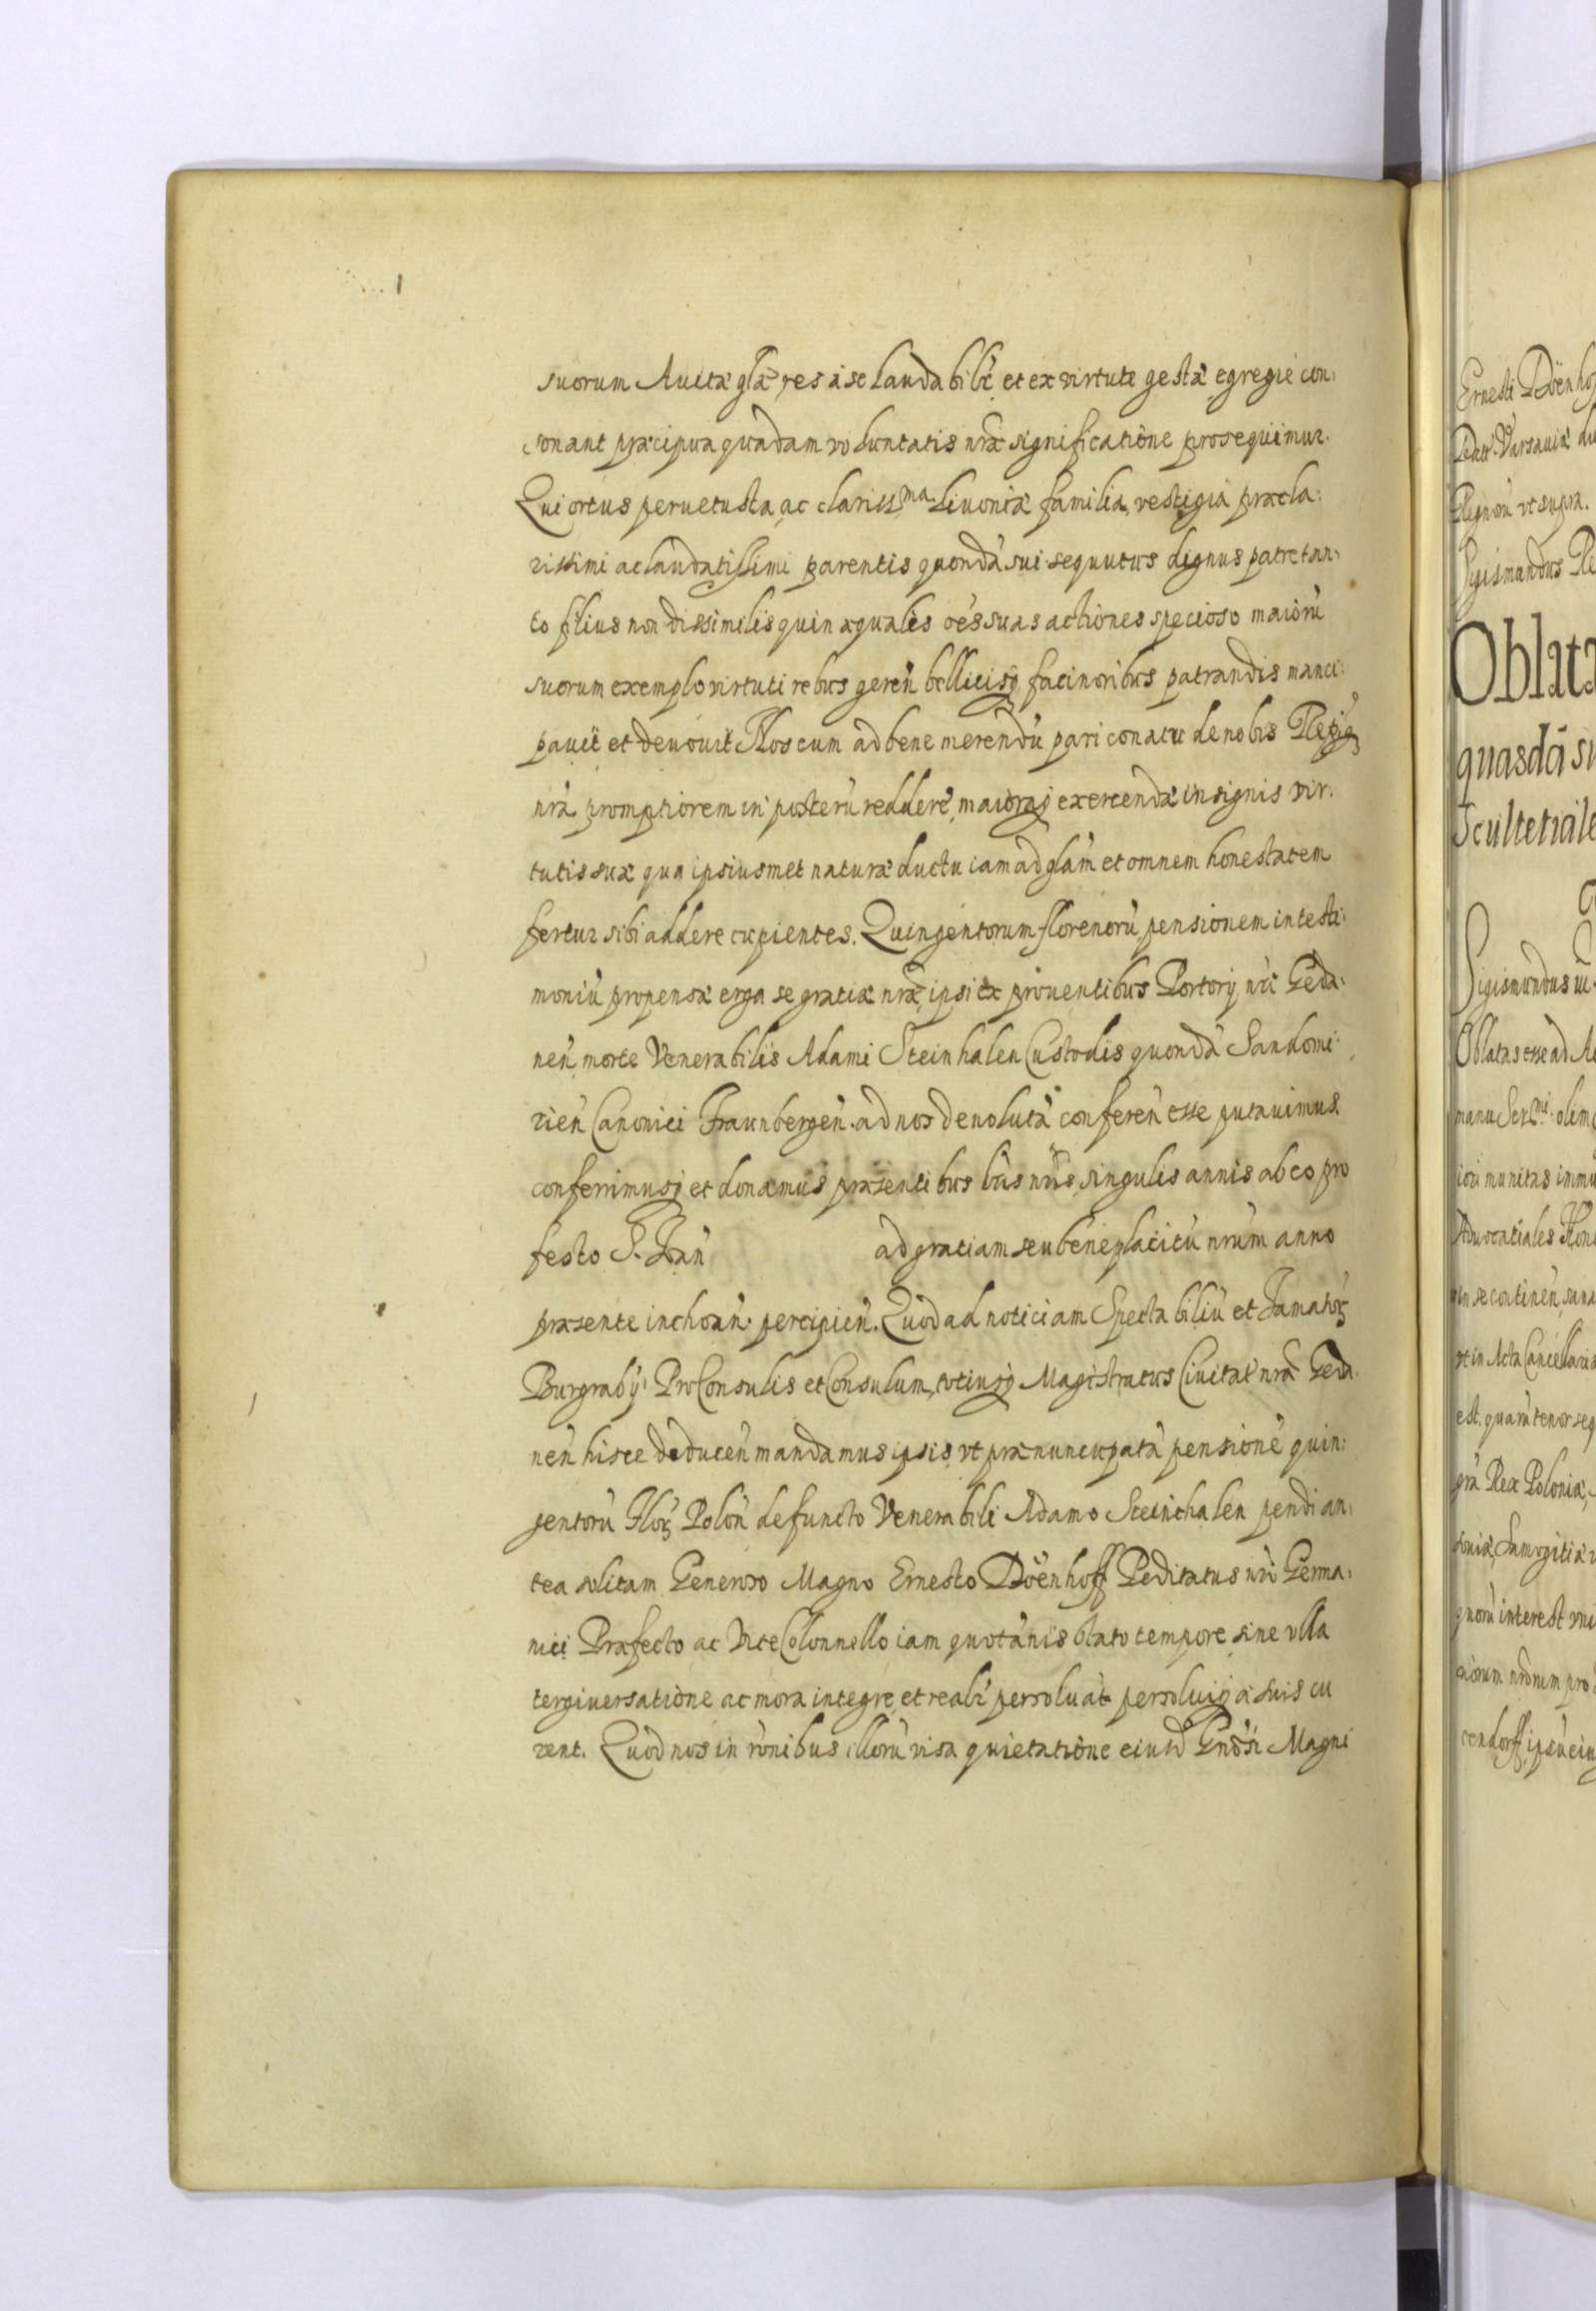 suorum Auitæ glæ, res a se laudabilr et ex virtute gestæ egregie con:
sonant præcipua quadam voluntatis nræ significatione prosequimur.
Qui ortus peruetusta ac clariss^ma Liuoniæ familia, vestigia præcla:
rissimi ac laudatissimi parentis quondā sui sequutus dignus patre tan:
to filius non dissimilis quin æqualis oēs suas actiones specioso maiorū
suorum exemplo virtuti rebus geren̄ bellicisq̨ facinoribus patrandis manci:
pauit et deuouit Nos eum ad bene merendū pari conatu de nobis Rep
nrā promptiorem in posterū reddere, maioraq̨ exercendæ insignis vir:
tutis suæ qua ipsiusmet naturæ ductu iam ad glām et omnem honestatem
fertur sibi addere cupientes. Quingentorum florenorū pensionem in testi:
moniū propensæ erga se gratiæ nræ ipsi ex prouentibus Portorij nri Geda:
nen̄ morte Venerabilis Adami Steinhalen Custodis quondā Sandomi:
rien̄ Canonici Fraunbergen̄ ad nos deuolutā conferen̄ esse putauimus
conferrimusq̨ et donamus præsentibus lris nris singulis annis ab eo pro
festo S. Jan̄ ad gratiam seu beneplacitū nrum anno
præsente inchoan̄ percipien̄. Quod ad noticiam Spectabiliū et Famator̨
Burgrabij ProConsulis et Consulum, totiusq̨ Magistratus Ciuitat nræ Geda
nen̄ hisce deducen̄ mandamus ipsis, vt prænuncupatā pensionē quin:
gentorū Flor̨ Polon̄ defuncto Venerabili Adamo Steinhalen pendi an:
tea solitam Generoso Magno Ernesto Döenhoff Peditatus nri Germa:
nici Præfecto ac ViceColonnello iam quotānis stato tempore sine vlla
tergiuersatione ac mora integre et realr persoluāt persoluiq̨ a suis cu
rent. Quod nos in rōnibus illorū visa quietatione eiusd Gnōsi Magni
Ernesti Döenhof
Datt Varsauiæ
Regnorū vt supra.
Sigismundus Re
Oblata
quasdā su
Scultetiale
Sigismundus
Oblatas esse ad
manu Ser^mi olim
iori munitas immu
Aduocatiales
in se continen̄, sana
vt in Acta Cancellaris
est. quarū tenor seq
grā Rex Poloniæ,
Samogitiæ
quorū interest vni
riorum nrorum pro
cendorff, ipsū eiu